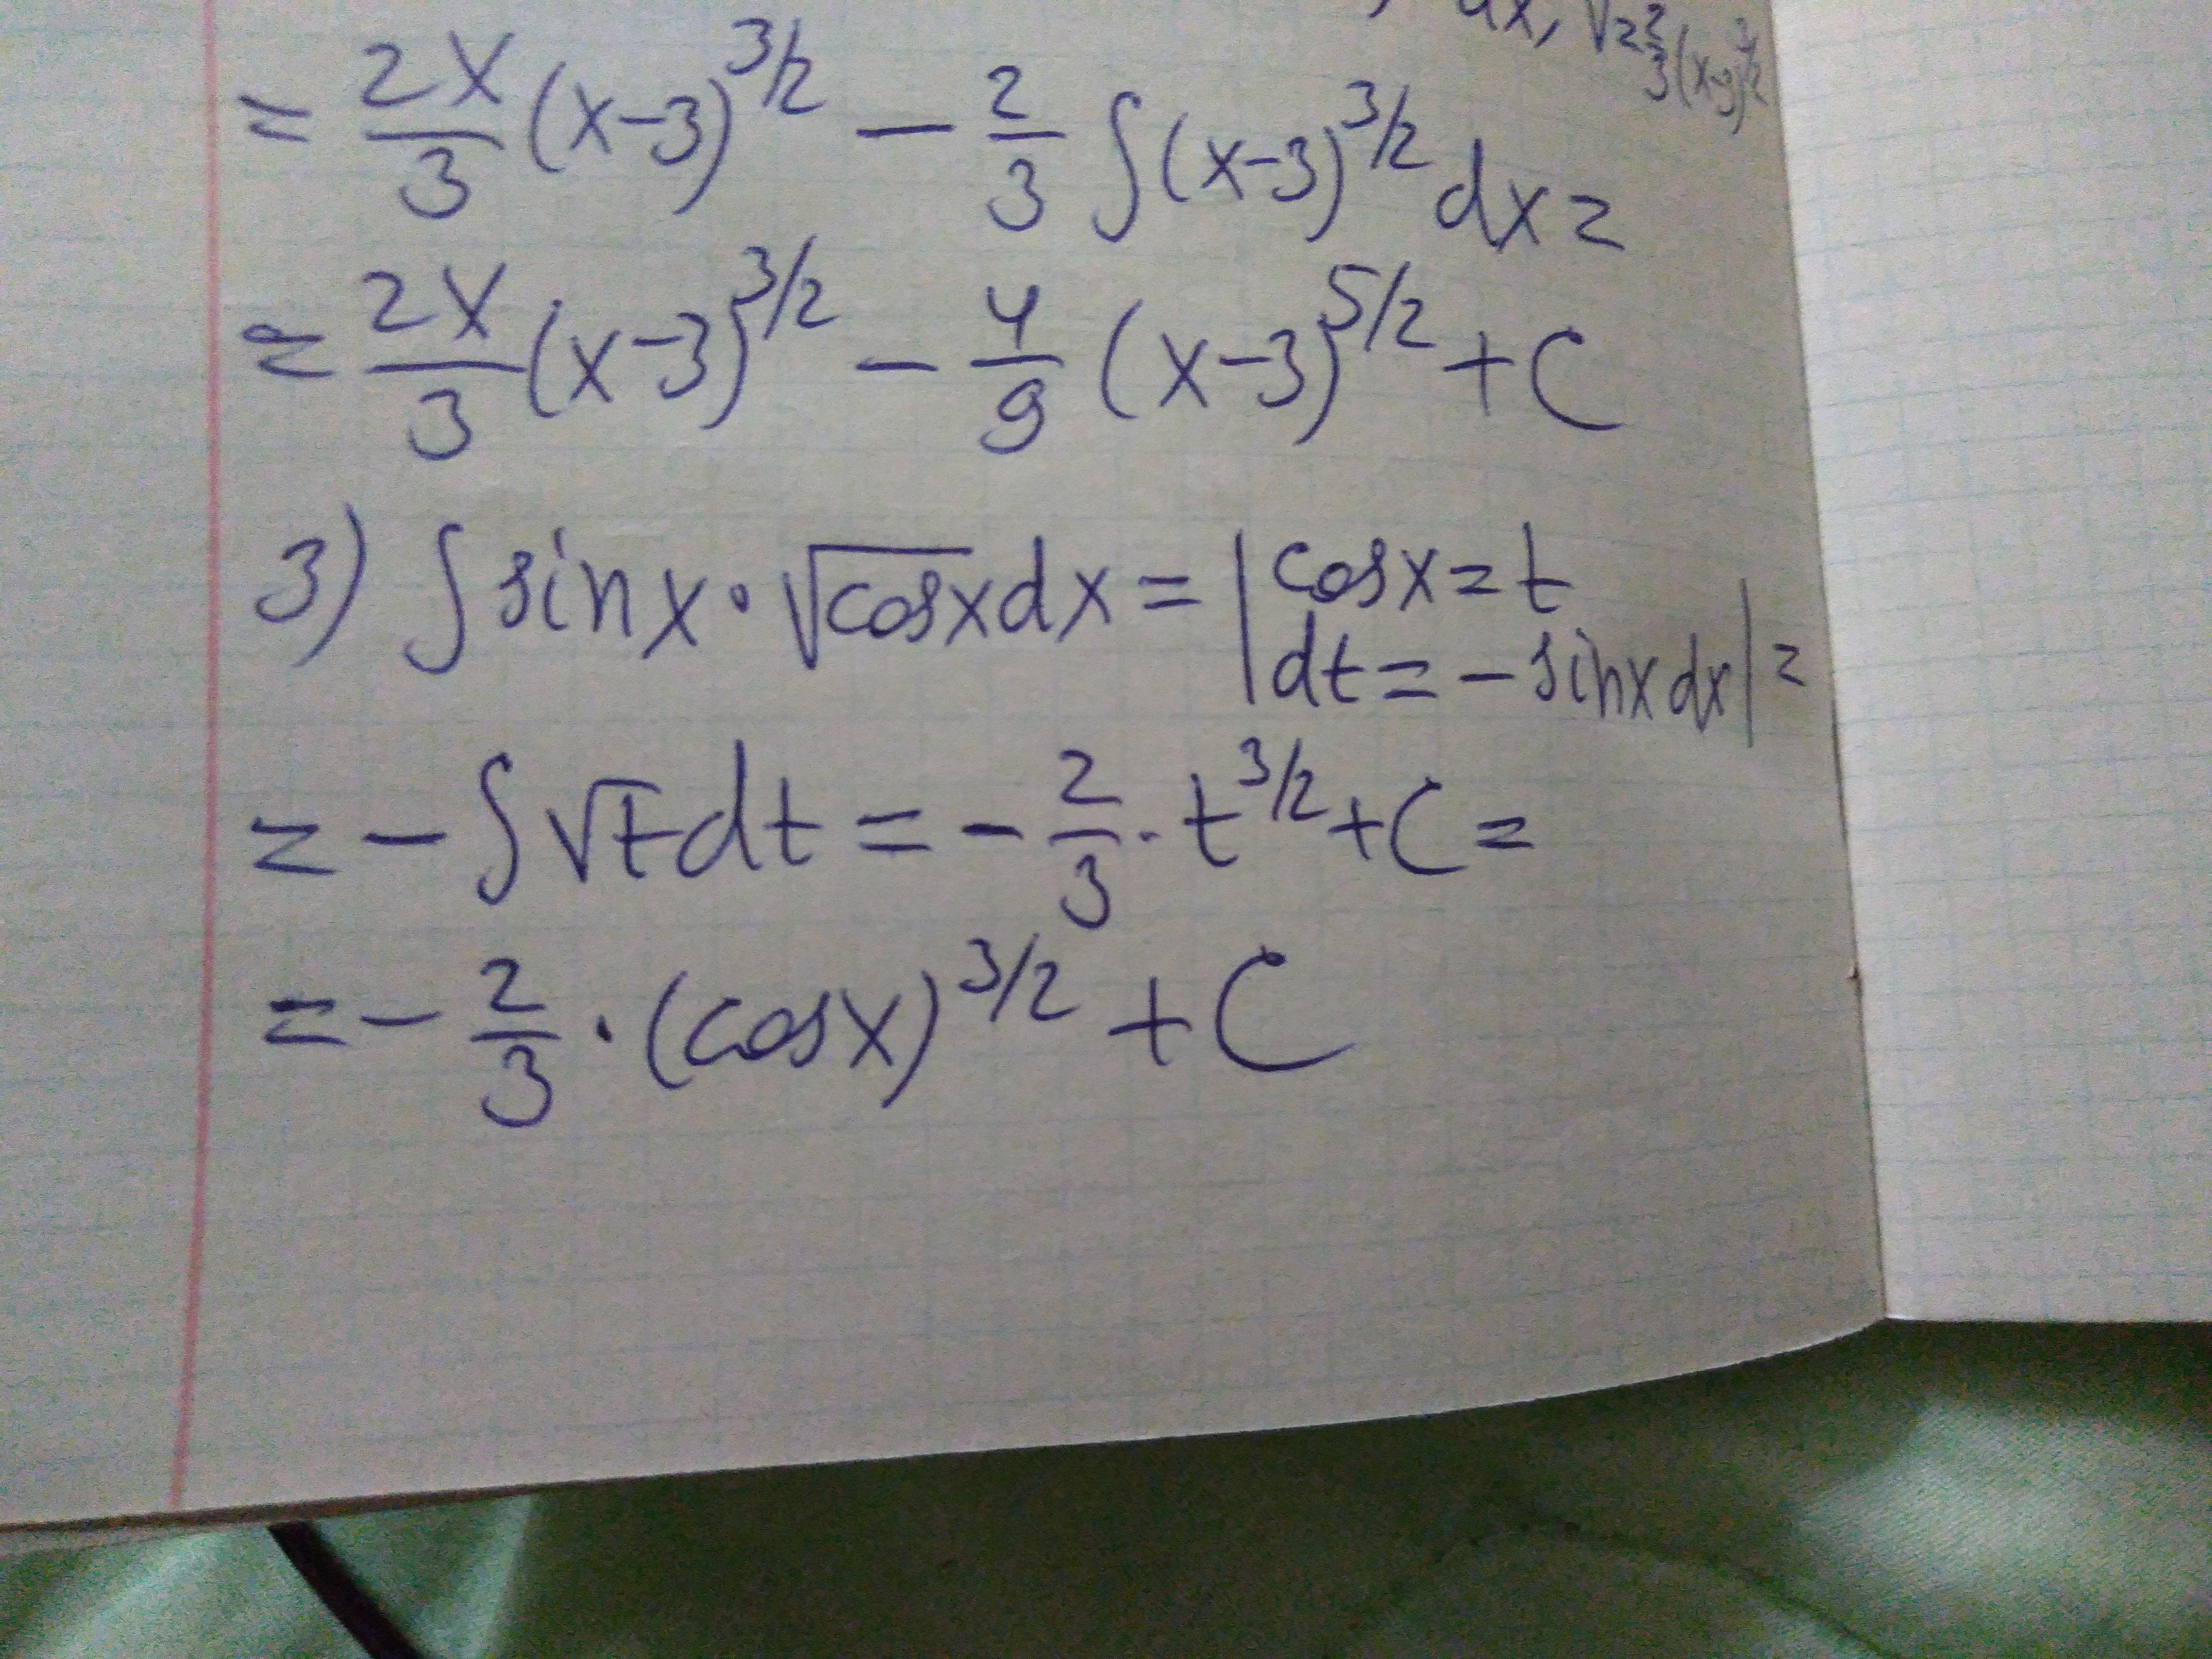 dx, V=2/3(x-3)^3/2
= 2x/3 (x-3)^3/2 - 2/3 ∫(x-3)^3/2 dx =
= 2x/3 (x-3)^3/2 - 4/9 (x-3)^5/2 + C
3) ∫ sinx · √cosx dx = | cosx = t
dt = - sinx dx | =
= - ∫ √t dt = - 2/3 · t^3/2 + C =
= - 2/3 · (cosx)^3/2 + C